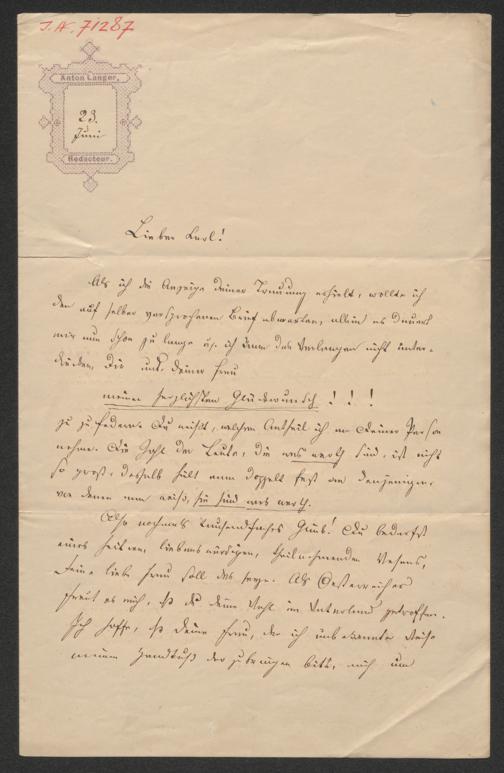 J.N. 71287
Anton Langer,
23.
Juni
Redacteur.
Lieber Karl!
Als ich die Anzeige deiner Trauung erhielt, wollte ich
den auf selber versprochenen Brief abwarten, allein es dauert
mir nun schon zu lange u. ich kann das Verlangen nicht unter-
drücken, Dir und deiner Frau
meinen herzlichsten Glückwunsch!!!
zu Du weißt, welchen Antheil ich an Deiner Person
nehme. Die Zahl der Leute, die was werth sind, ist nicht
so groß, deshalb hält man doppelt fest an denjenigen
von denen man weiß, sie sind was werth.
Also nochmals tausendfaches Glück! Du bedarfst
eines heitren, liebenswürdigen, theilnehmenden Wesens,
Deine liebe Frau soll das sein. Als Oesterreicher
freut es mich, daß du deine Wahl im Vaterland getroffen.
Ich hoffe, daß Deine Frau, der ich unbekannter Weise
meinen Handkuß bitte, mich um